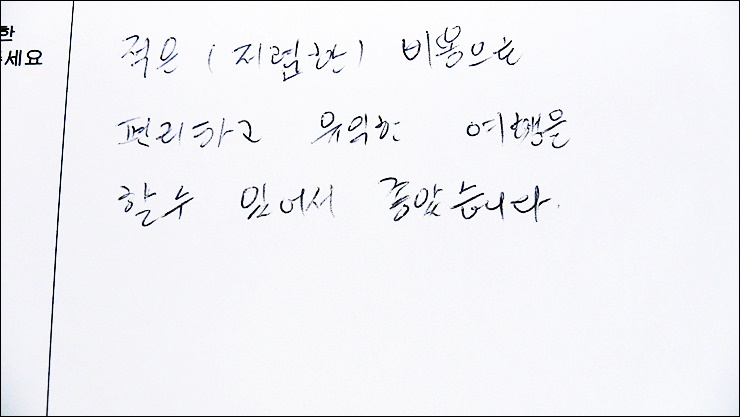 한
세요
적은 (저렴한) 비용으로
편리하고 유익한 여행을
할수 있어서 좋았습니다.